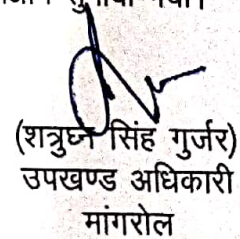 (शत्रुघ्न सिंह गुर्जर)
उपखण्ड अधिकारी
मांगरोल